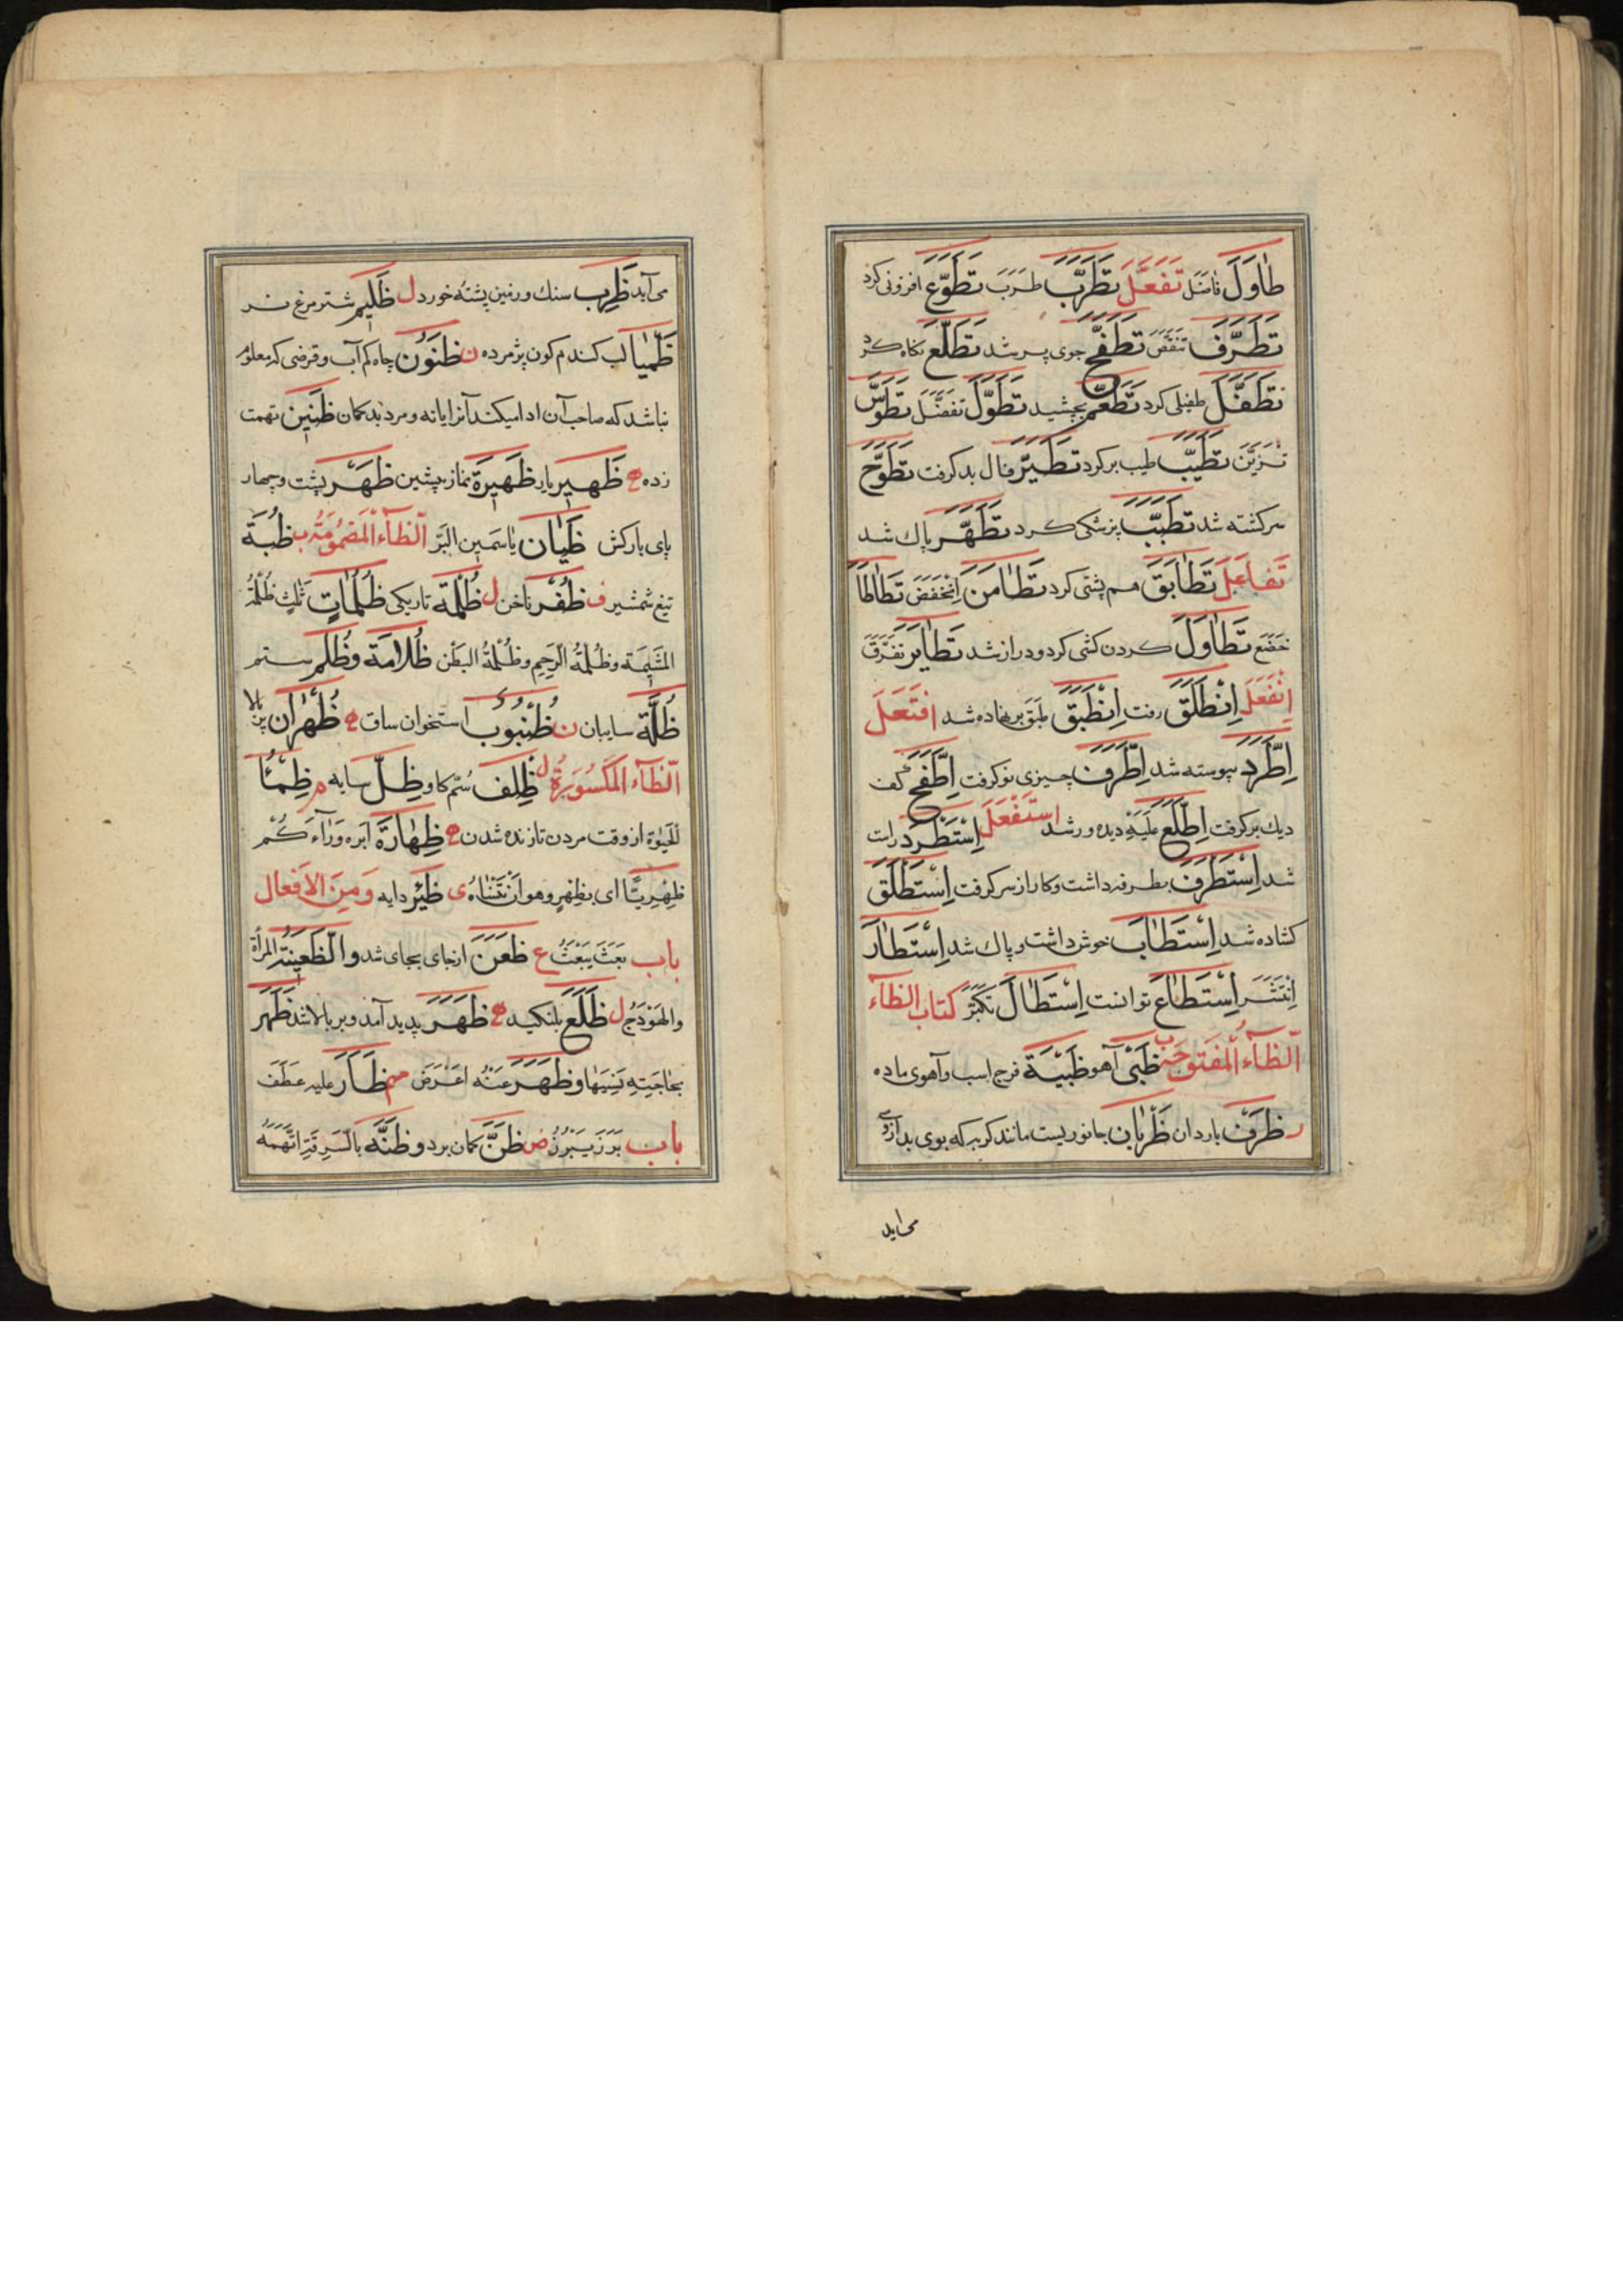 طٰاوَلَ فٰاضَلَ تَفَعَّلَ تَطَرَّبَ طَرَبَ تَطَوَّعَ افزونی کرد
تَطَرَّفَ تَنَقَّصَ تَطَفَّحَ جوی پر شد تَطَلَّعَ نکاه کرد
تَطَفَّلَ طفیلی کرد تَطَعَّمَ بچشید تَطَوَّلَ تَفَضَّلَ تَطَوَّسَ
تَزَیَّنَ تَطَیَّبَ طیب بر کرد تَطَیَّرَ فال بد کرفت تَطَوَّحَ
سرکشته شد تَطَبَّبَ پزشکی کرد تَطَهَّرَ پاك شد
تَفاعَلَ تَطٰابَقَ هم پشتی کرد تَطٰامَنَ اِنْخَفَضَ تَطٰاطَا
خَضَعَ تَطٰاوَلَ کردن کشی کرد و دراز شد تَطٰایَرَ تَفَرَّقَ
اِنْفَعَلَ اِنْطَلَقَ رفت اِنْطَبَقَ طبق بر نهاده شد افتَعَلَ
اِطَّرَدَ پیوسته شد اِطَّرَفَ چیزی نو کرفت اِطَّفَحَ کف
دیك بر کرفت اِطَّلَعَ عَلَیْهِ دیده ور شد اِستَفْعَلَ اِسْتَطْرَدَ راست
شد اِسْتَطْرَفَ بطرفه داشت و کار از سر کرفت اِسْتَطْلَقَ
کشاده شد اِسْتَطٰابَ خوش داشت و پاك شد اِسْتَطٰارَ
اِنْتَشَرَ اِسْتَطٰاعَ توانست اِسْتَطٰالَ تَکَبَّرَ کتاب الظاء
الظّآء المَفتوحَة ب ظَبْی آهو ظَبْیَة فرج اسب و آهوی ماده
ر ظَرْف باردان ظَرْبان جانوریست مانند کربه که بوی بد ازوی
می اید
می آید ظَرِب سنك ورنین پشته خورد ل ظَلیم شتر مرغ نر
ظَمْیا لب کندم کون پژمرده ن ظَنُون چاه کم آب و قرضی که معلوم
نباشد که صاحب آن ادا میکند آنرا یا نه و مرد بد کمان ظَنین تهمت
زده ه ظَهیر یار ظَهیرَة نماز پیشین ظَهْر پشت و چهار
پای بارکش ظَیّان یاسَمین البَرّ الظّآء المَضمُومَة ب ظُبَة
تیغ شمشیر ف ظُفْر ناخن ل ظُلْمَة تاریکی ظُلُمات ثَلٰث ظُلْمَةُ
المَشیمَة و ظُلْمَةُ الرَّحِمِ و ظُلْمَةُ البَطْن ظُلامَة و ظُلْم ستم
ظُلَّة سایبان ن ظُنْبُوب استخوان ساق ه ظُهْران پر بالا
الظّآء المَکسُورَة ل ظِلْف سُم کاو ظِلّ سایه م ظِمْئُ
الحَیٰوة از وقت مردن تا زنده شدن ه ظِهٰارَة ابره وَرٰآءَکُمْ
ظِهْرِیًّا ای بِظَهْرٍ و هو اَنْ تَنْسٰاهُ ی ظِئْر دایه وَمِنَ الاَفعال
باب بَعَثَ یَبْعَثُ ع ظَعَنَ از جای بجای شد و الظَّعینَة المَرْأة
والهَوْدَج ل ظَلَعَ بلنکید ه ظَهَرَ پدید آمد و بر بالا شد ظَهَرَ
بحاجَتِهِ نَسِیَهٰا و ظَهَرَ عَنْهُ اَعْرَضَ مهم ظَأَرَ علیه عَطَفَ
باب بَرَزَ یَبْرُزُ ض ظَنَّ کمان برد و ظَنَّهُ بالسَّرِقَةِ اتَّهَمَهُ